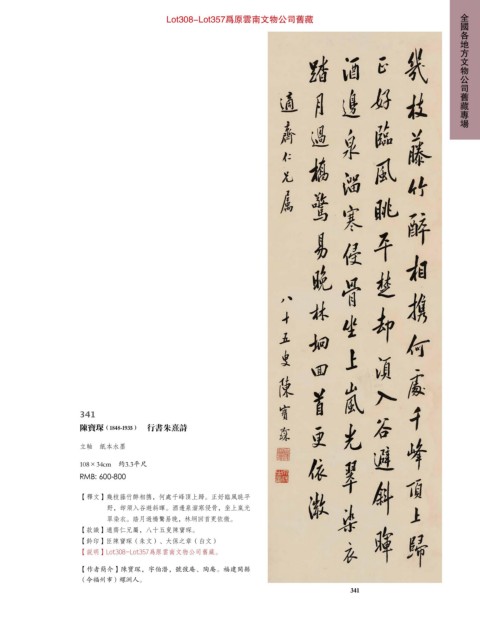 Lot308-Lot357爲原雲南文物公司舊藏
全國各地方文物公司舊藏專場
幾枝藤竹醉相攜何處千峰頂上歸
正好臨風眺平楚却須入谷避斜暉
酒邊泉溜寒侵骨坐上嵐光翠染衣
踏月過橋驚易晚林坰回首更依微
適齋仁兄屬
八十五叟陳寶琛
341
陳寶琛（1848-1935） 行書朱熹詩
立軸 紙本水墨
108×34cm 約3.3平尺
RMB: 600-800
【釋文】幾枝藤竹醉相攜，何處千峰頂上歸。正好臨風眺平
楚，却須入谷避斜暉。酒邊泉溜寒侵骨，坐上嵐光
翠染衣。踏月過橋驚易晚，林坰回首更依微。
【款識】適齋仁兄屬，八十五叟陳寶琛。
【鈐印】臣陳寶琛（朱文）、太保之章（白文）
【説明】Lot308-Lot357爲原雲南文物公司舊藏。
【作者簡介】陳寶琛，字伯潛，號弢庵、陶庵。福建閩縣
（今福州市）螺洲人。
341